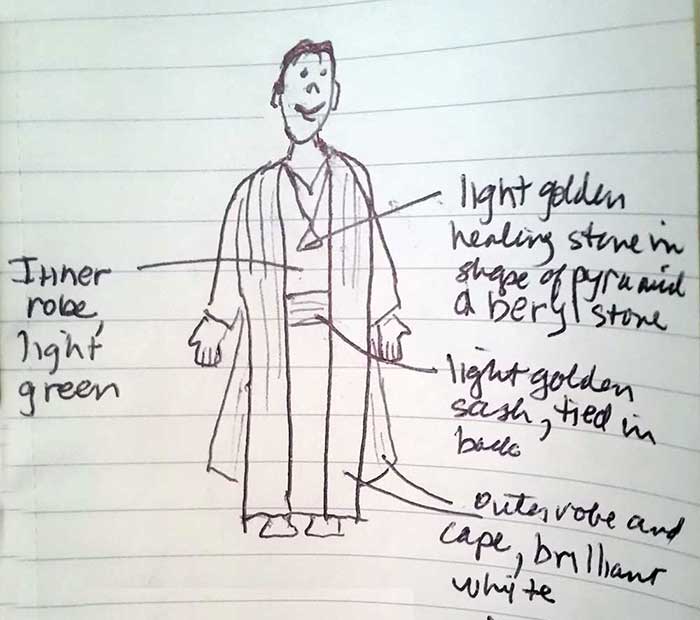 light golden
healing stone in
shape of pyramid
a beryl stone
Inner
robe,
light
green
light golden
sash, tied in
back
outer robe and
cape, brilliant
white